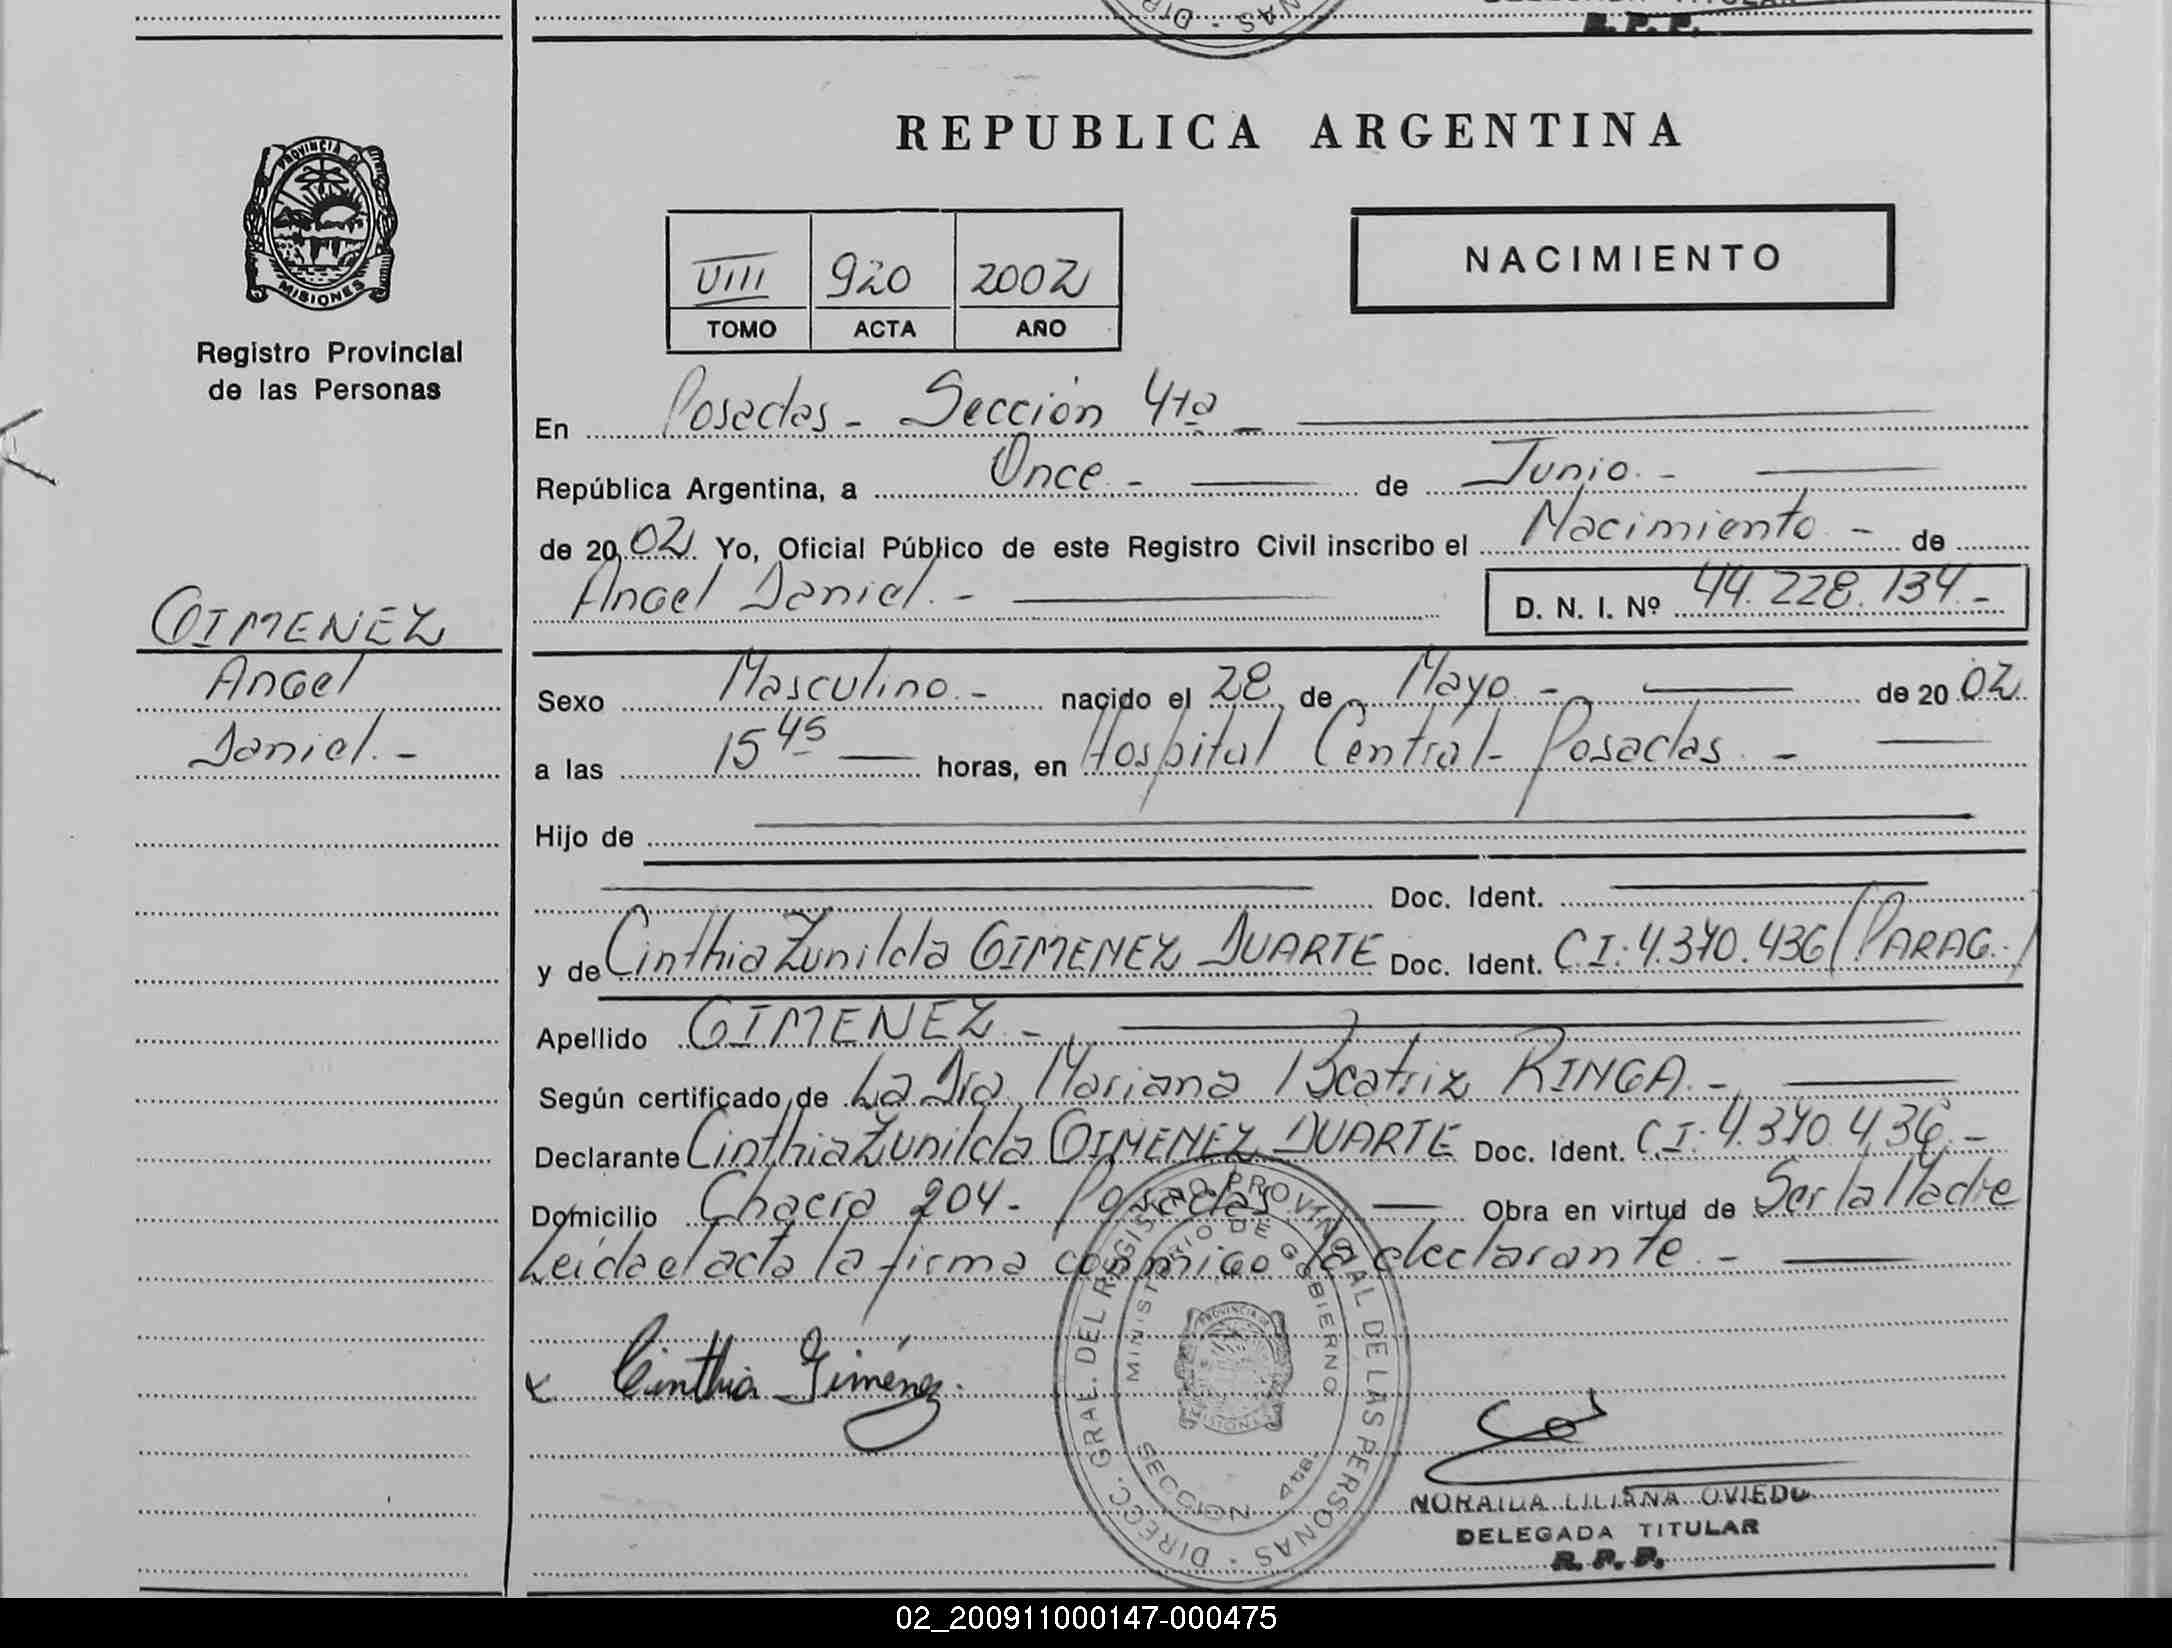 REPUBLICA ARGENTINA
PROVINCIA DE
MISIONES
Registro Provincial
de las Personas
VIII 920 2002
TOMO ACTA AÑO
NACIMIENTO
En Posadas - Sección 4ta -
República Argentina, a Once - de Junio -
de 2002 Yo, Oficial Público de este Registro Civil inscribo el Nacimiento - de
Angel Daniel. - D. N. I. Nº 44.228.134 -
GIMENEZ
Angel
Daniel. -
Sexo Masculino. - nacido el 28 de Mayo - de 2002
a las 15 45 horas, en Hospital Central - Posadas. -
Hijo de
Doc. Ident.
y de Cinthia Zunilda GIMENEZ DUARTE Doc. Ident. C.I: 4.370.436 (PARAG.)
Apellido GIMENEZ. -
Según certificado de La Dra Mariana Beatriz RINGA. -
Declarante Cinthia Zunilda GIMENEZ DUARTE Doc. Ident. C.I: 4.370.436. -
Domicilio Chacra 204 - Posadas Obra en virtud de Ser la Madre
Leída el acta la firma conmigo la declarante. -
Cinthia Giménez.
DIRECC. GRAL. DEL REGISTRO PROVINCIAL DE LAS PERSONAS
MINISTERIO DE GOBIERNO
SECCION 4ta.
NORAIDA LILIANA OVIEDO
DELEGADA TITULAR
R. P. P.
02_200911000147-000475